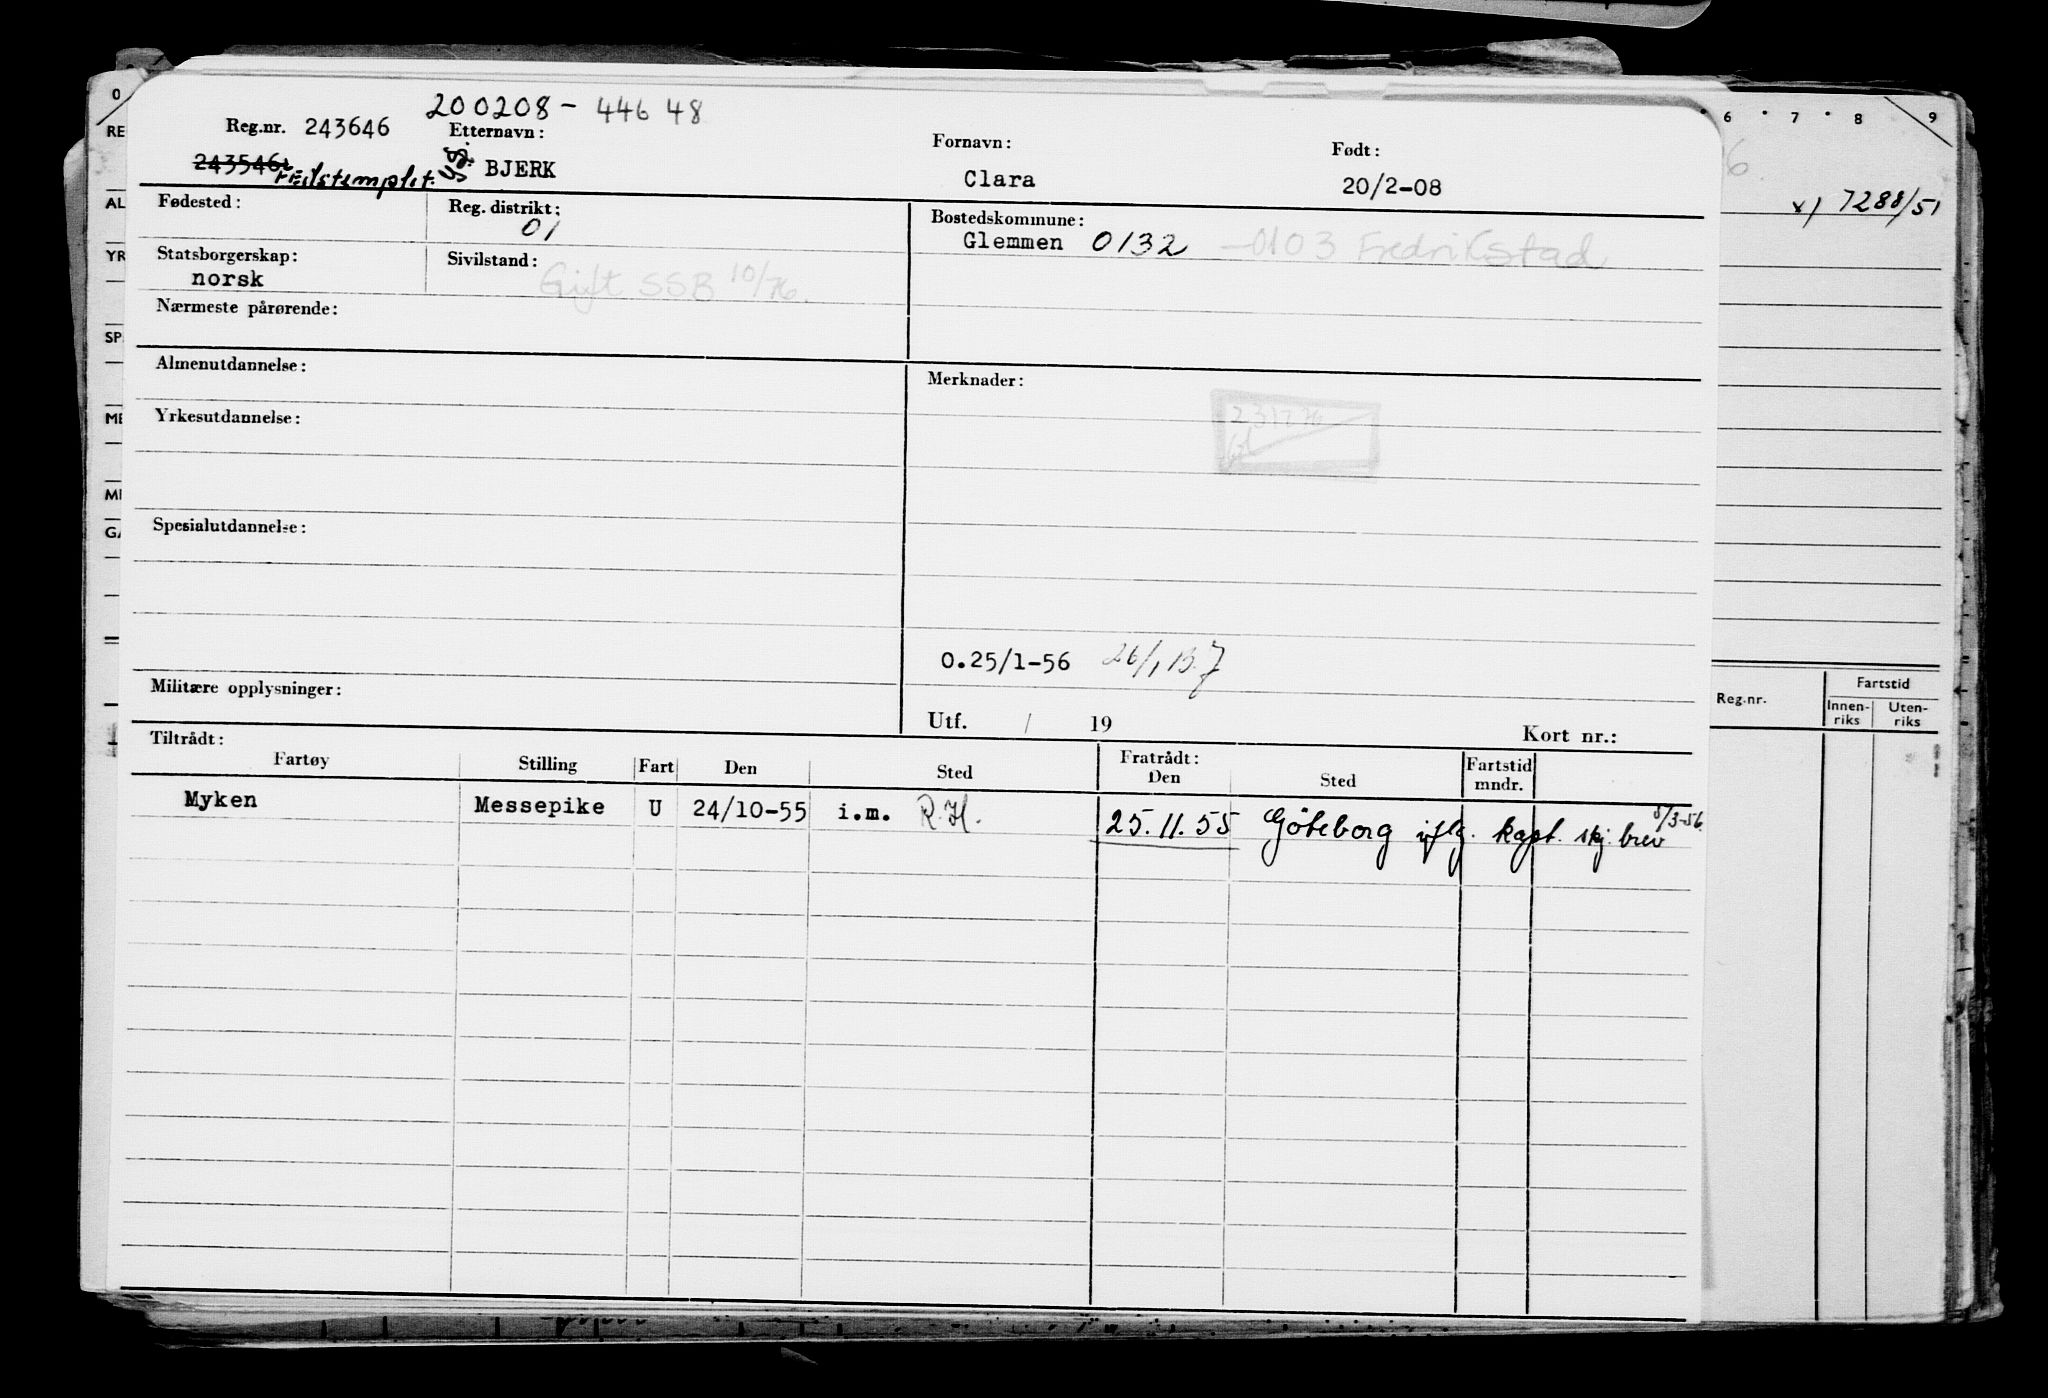 200208 - 446 48
Reg.nr. 243646 Etternavn: Fornavn: Født:
243546 Feilstemplet. BJERK Clara 20/2-08
Fødested: Reg. distrikt: 01 Bostedskommune:
Glemmen 0132 - 0103 Fredrikstad
Statsborgerskap: norsk Sivilstand: Gift SSB 10/76.
Nærmeste pårørende:
Almenutdannelse: Merknader:
Yrkesutdannelse:
Spesialutdannelse:
O.25/1-56 26/1 B.J
Militære opplysninger:
Utf. / 19 Kort nr.:
Tiltrådt: Fratrådt:
Fartøy Stilling Fart Den Sted Den Sted Fartstid mndr.
Myken Messepike U 24/10-55 i.m. R.H. 25.11.55 Göteborg iflg. kapt. skj. brev 5/3-56.
0 6 7 8 9
RE
AL x) 7288/51
YR
SP
ME
MI
GA
Reg.nr. Fartstid
Innen-riks Uten-riks